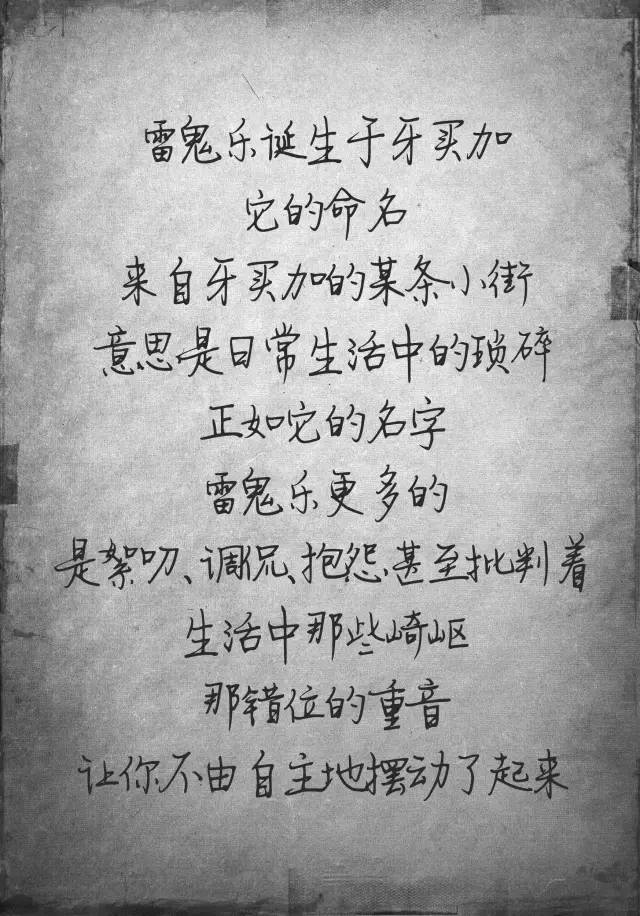 雷鬼乐诞生于牙买加
它的命名
来自牙买加的某条小街
意思是日常生活中的琐碎
正如它的名字
雷鬼乐更多的
是絮叨、调侃、抱怨、甚至批判着
生活中那些崎岖
那错位的重音
让你不由自主地摆动了起来